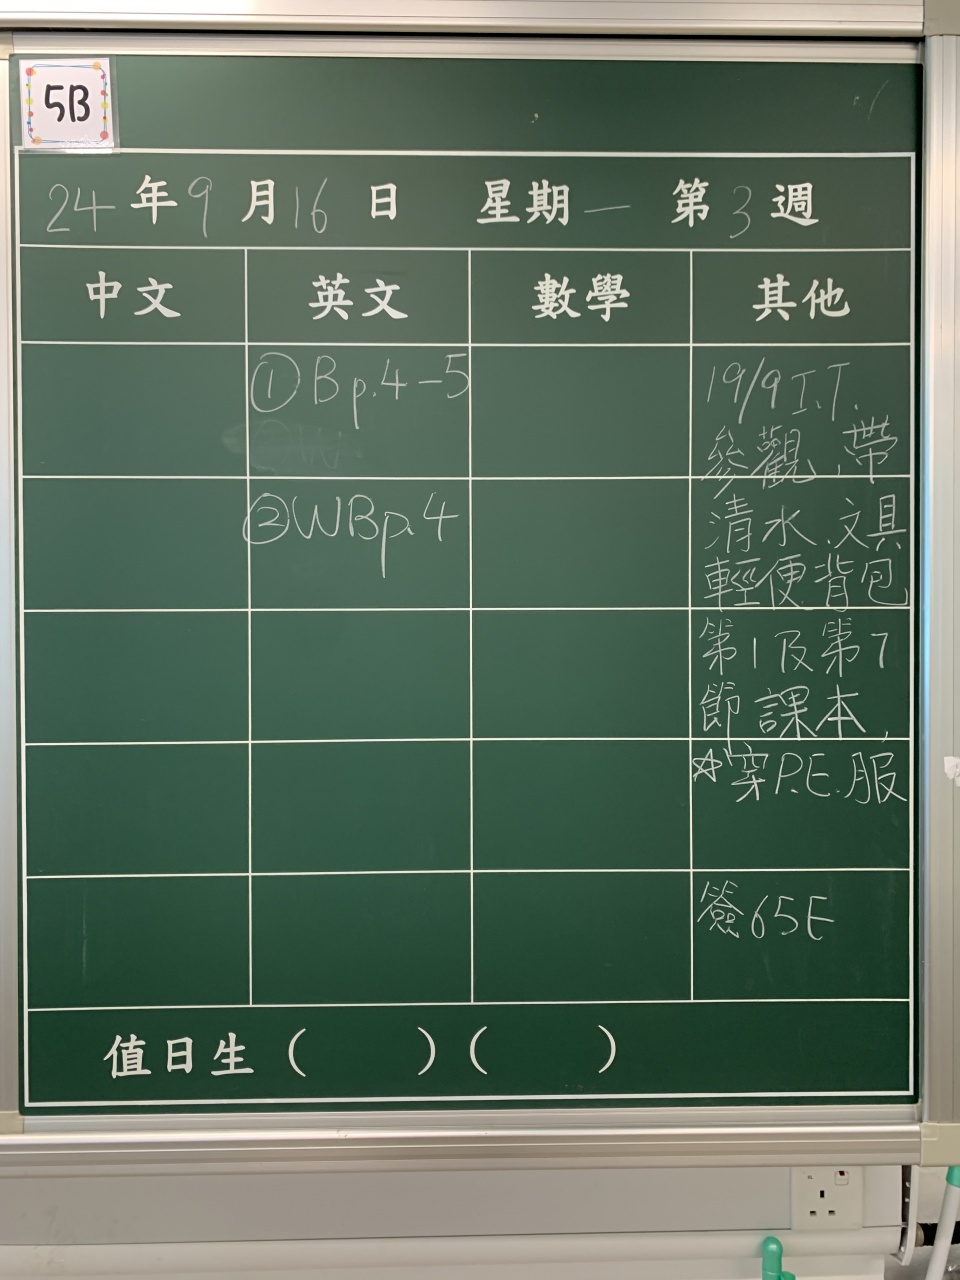 5B
24年9月16日 星期一 第3週
中文 英文 數學 其他
①B p.4-5
②WBp.4
19/9 I.T.
參觀,帶
清水,文具
輕便背包
第1及第7
節課本,
☆穿P.E.服
簽65E
值日生( )( )